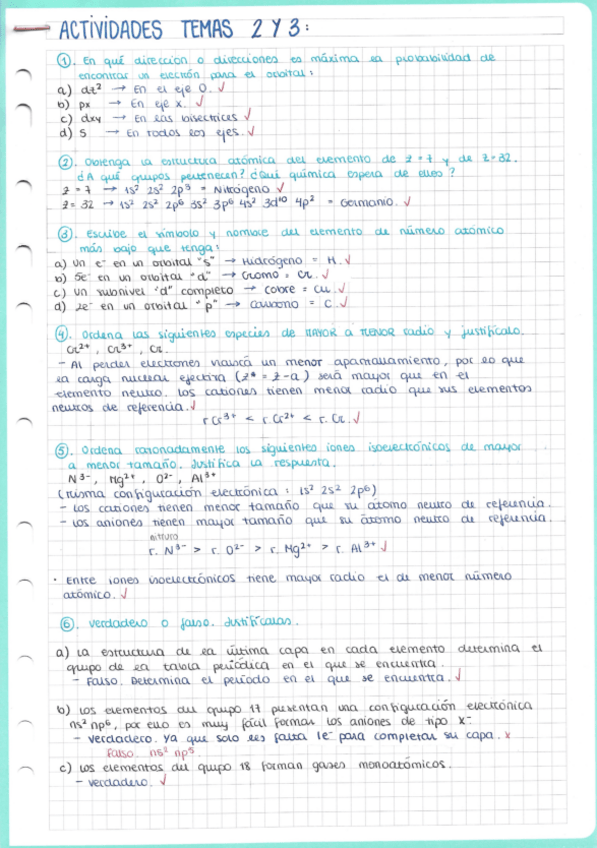 ACTIVIDADES TEMAS 2 Y 3:
① En qué dirección o direcciones es máxima la probabilidad de
encontrar un electrón para el orbital:
a) dz² → En el eje O. ✓
b) px → En eje x. ✓
c) dxy → En las bisectrices ✓
d) S → En todos los ejes. ✓
② Obtenga la estructura atómica del elemento de Z=7 y de Z=32.
¿A qué grupos pertenecen? ¿Qué química espera de ellos?
Z=7 → 1s² 2s² 2p³ = Nitrógeno ✓
Z=32 → 1s² 2s² 2p⁶ 3s² 3p⁶ 4s² 3d¹⁰ 4p² = Germanio. ✓
③ Escribe el símbolo y nombre del elemento de número atómico
más bajo que tenga:
a) Un e⁻ en un orbital "s" → Hidrógeno = H. ✓
b) 5e⁻ en un orbital "d" → Cromo = Cr. ✓
c) un subnivel "d" completo → cobre = Cu. ✓
d) 2e⁻ en un orbital "p" → carbono = C ✓
④ Ordena las siguientes especies de MAYOR a MENOR radio y justifícalo.
Cr²⁺, Cr³⁺, Cr.
- Al perder electrones habrá un menor apantallamiento, por lo que
la carga nuclear efectiva (Z* = Z - a) será mayor que en el
elemento neutro. Los cationes tienen menor radio que sus elementos
neutros de referencia. ✓
r Cr³⁺ < r. Cr²⁺ < r. Cr. ✓
⑤ Ordena razonadamente los siguientes iones isoelectrónicos de mayor
a menor tamaño. Justifica la respuesta.
N³⁻, Mg²⁺, O²⁻, Al³⁺
(misma configuración electrónica: 1s² 2s² 2p⁶)
- Los cationes tienen menor tamaño que su átomo neutro de referencia.
- Los aniones tienen mayor tamaño que su átomo neutro de referencia.
nitruro
r. N³⁻ > r. O²⁻ > r. Mg²⁺ > r. Al³⁺ ✓
· Entre iones isoelectrónicos tiene mayor radio el de menor número
atómico. ✓
⑥ Verdadero o falso. Justifícalas.
a) La estructura de la última capa en cada elemento determina el
grupo de la tabla periódica en el que se encuentra.
- Falso. Determina el período en el que se encuentra. ✓
b) Los elementos del grupo 17 presentan una configuración electrónica
ns² np⁶, por ello es muy fácil formar los aniones de tipo X⁻
- Verdadero. Ya que solo les falta 1e⁻ para completar su capa. x
Falso. ns² np⁵.
c) Los elementos del grupo 18 forman gases monoatómicos.
- Verdadero. ✓